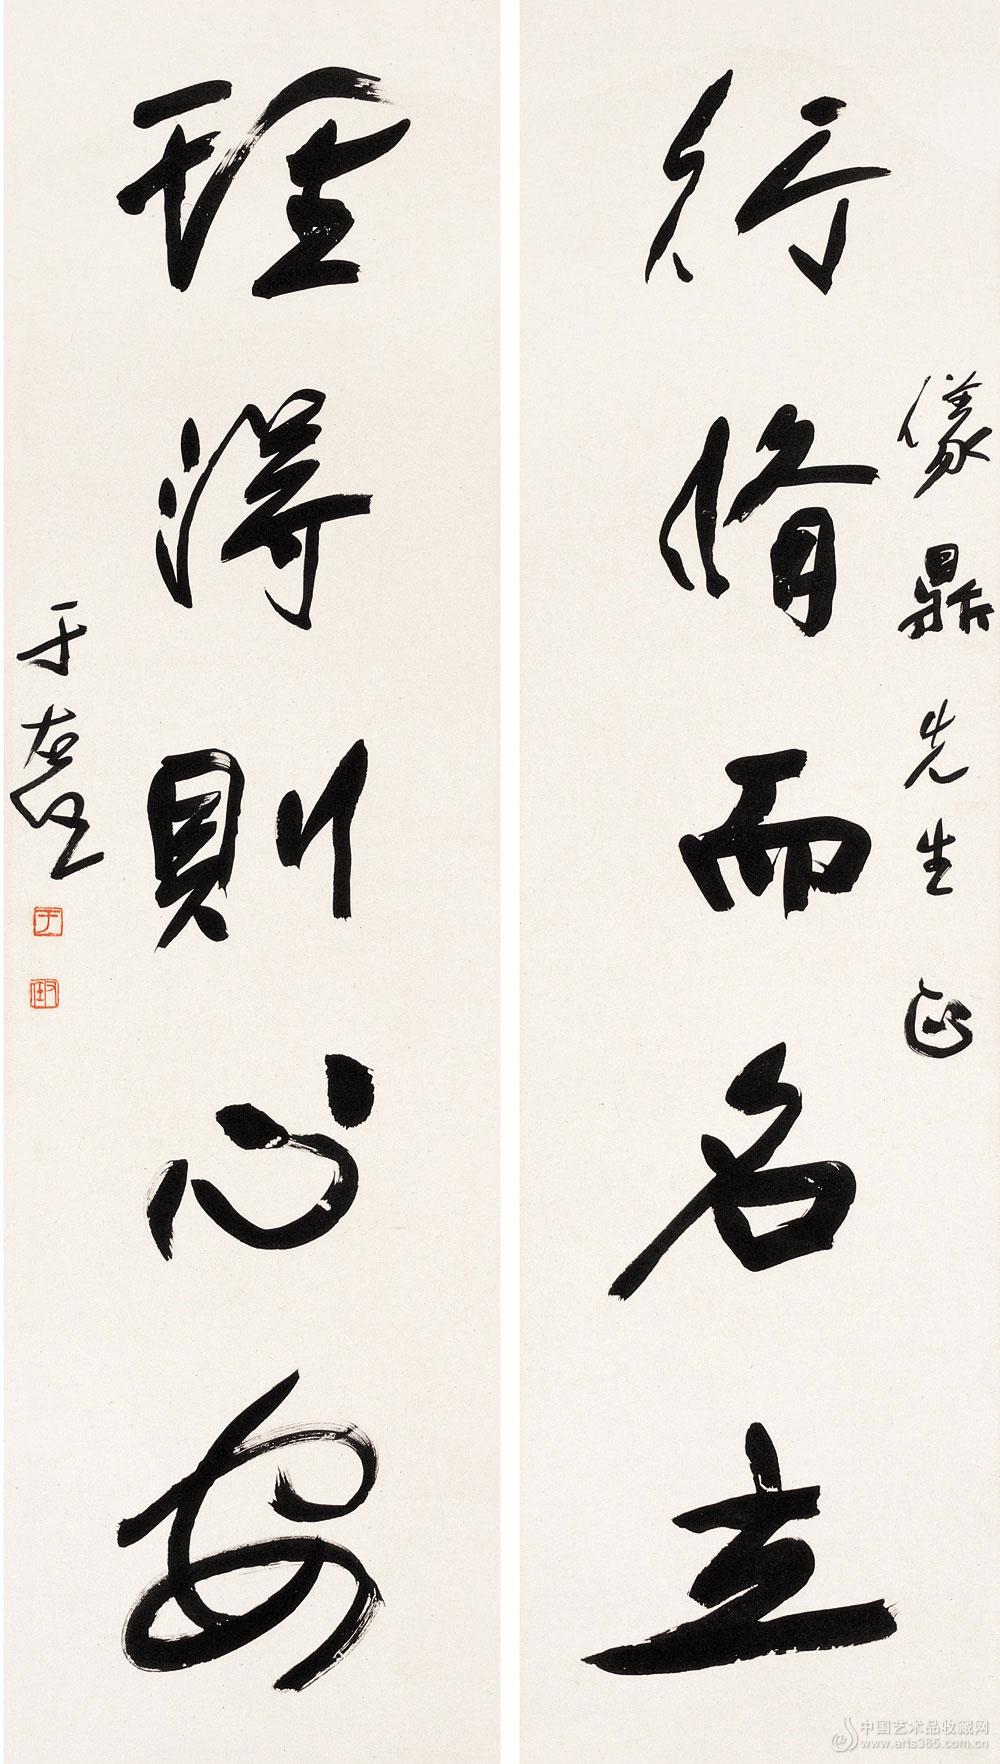 行脩而名立
儀鼎先生正
理得則心安
于右任
于
右任
中国艺术品收藏网
www.arts365.com.cn